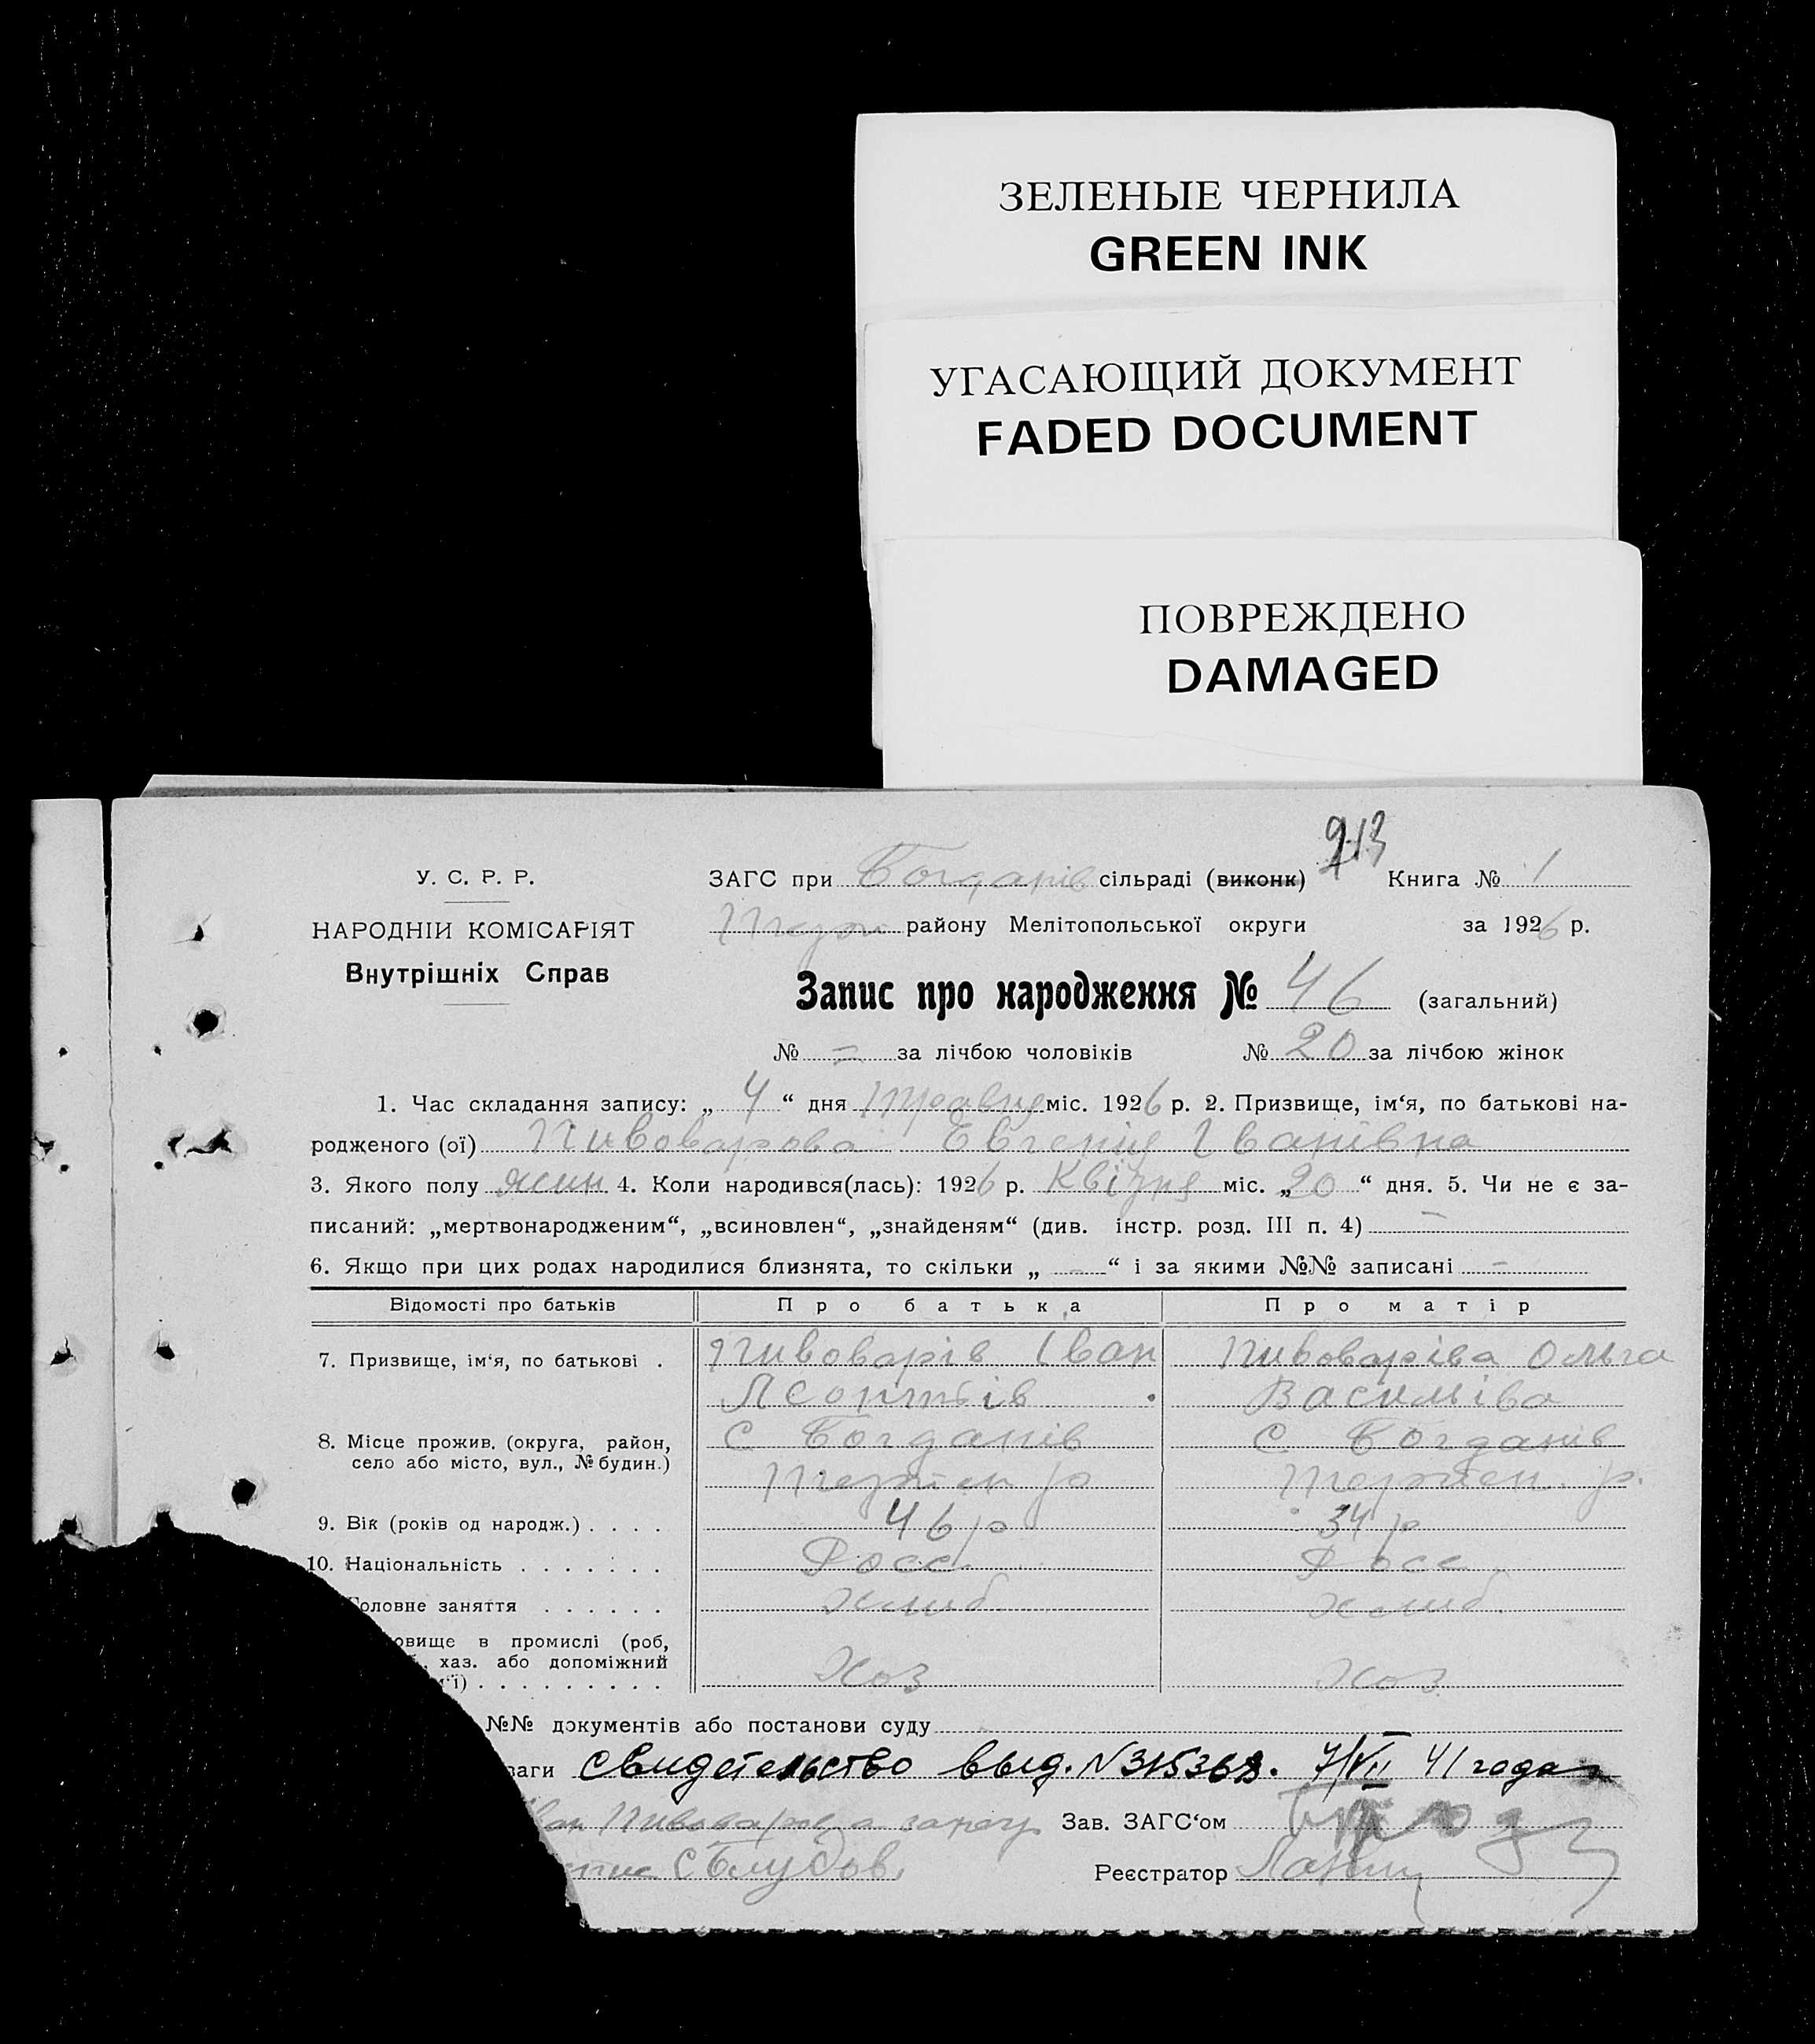 ЗЕЛЕНЫЕ ЧЕРНИЛА
GREEN INK
УГАСАЮЩИЙ ДОКУМЕНТ
FADED DOCUMENT
ПОВРЕЖДЕНО
DAMAGED
213
У. С. Р. Р.
НАРОДНІЙ КОМІСАРІЯТ
Внутрішніх Справ
ЗАГС при Богданів сільраді (виконк) Книга № 1
району Мелітопольської округи за 1926 р.
Запис про народження № 46 (загальний)
№ = за лічбою чоловіків № 20 за лічбою жінок
1. Час складання запису: „ 4 “ дня Травня міс. 1926 р. 2. Призвище, ім‘я, по батькові на-
родженого (ої) Пивоварова Евгенія Іванівна
3. Якого полу жин 4. Коли народився(лась): 1926 р. Квітня міс. „ 20 “ дня. 5. Чи не є за-
писаний: „мертвонародженим“, „всиновлен“, „знайденям“ (див. інстр. розд. III п. 4) –
6. Якщо при цих родах народилися близнята, то скільки „ – “ і за якими №№ записані –
Відомості про батьків Про батька Про матір
7. Призвище, ім‘я, по батькові . Пивоварів Іван Пивоваріва Ольга
Леонтьів Василіва
8. Місце прожив. (округа, район, с Богданів с Богданів
село або місто, вул., № будин.) Терпен р Терпен. р.
9. Вік (років од народж.) . . . . 46 р 34 р
10. Національність . . . . . . . Росс. Росс
Головне заняття . . . . . . Хлиб. Хлиб.
овище в промислі (роб,
., хаз. або допоміжний
‘ї) . . . . . . . . . Хоз Хоз
№№ документів або постанови суду
ваги Свидетельство выд. N 315368. 7/VII 41 года
Пивоварова Зав. ЗАГС‘ом
Реєстратор